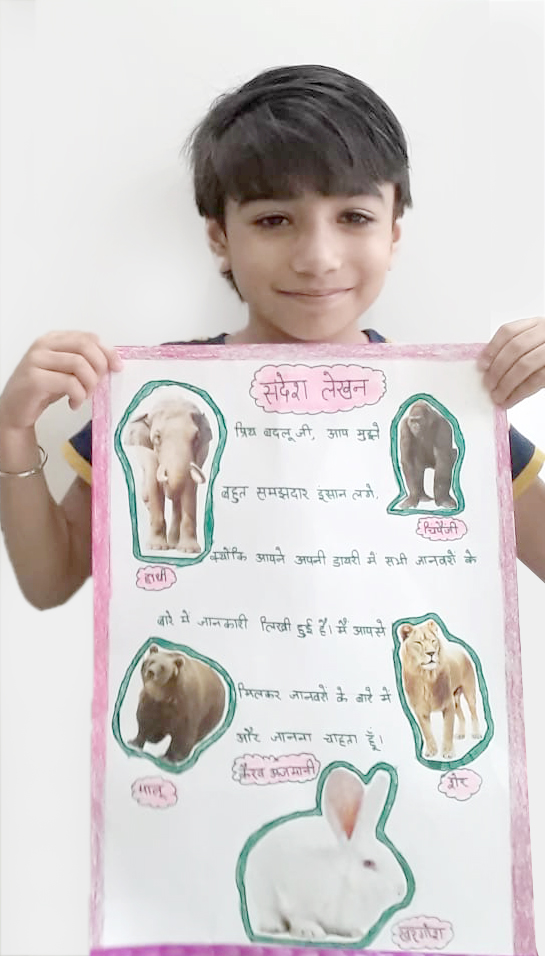 संदेश लेखन
प्रिय बदलू जी, आप मुझे
बहुत समझदार इंसान लगे,
क्योंकि आपने अपनी डायरी में सभी जानवरों के
बारे में जानकारी लिखी हुई है। मैं आपसे
मिलकर जानवरों के बारे में
और जानना चाहता हूँ।
हाथी
चिंपैंजी
भालू
शेर
अजमानी
खरगोश